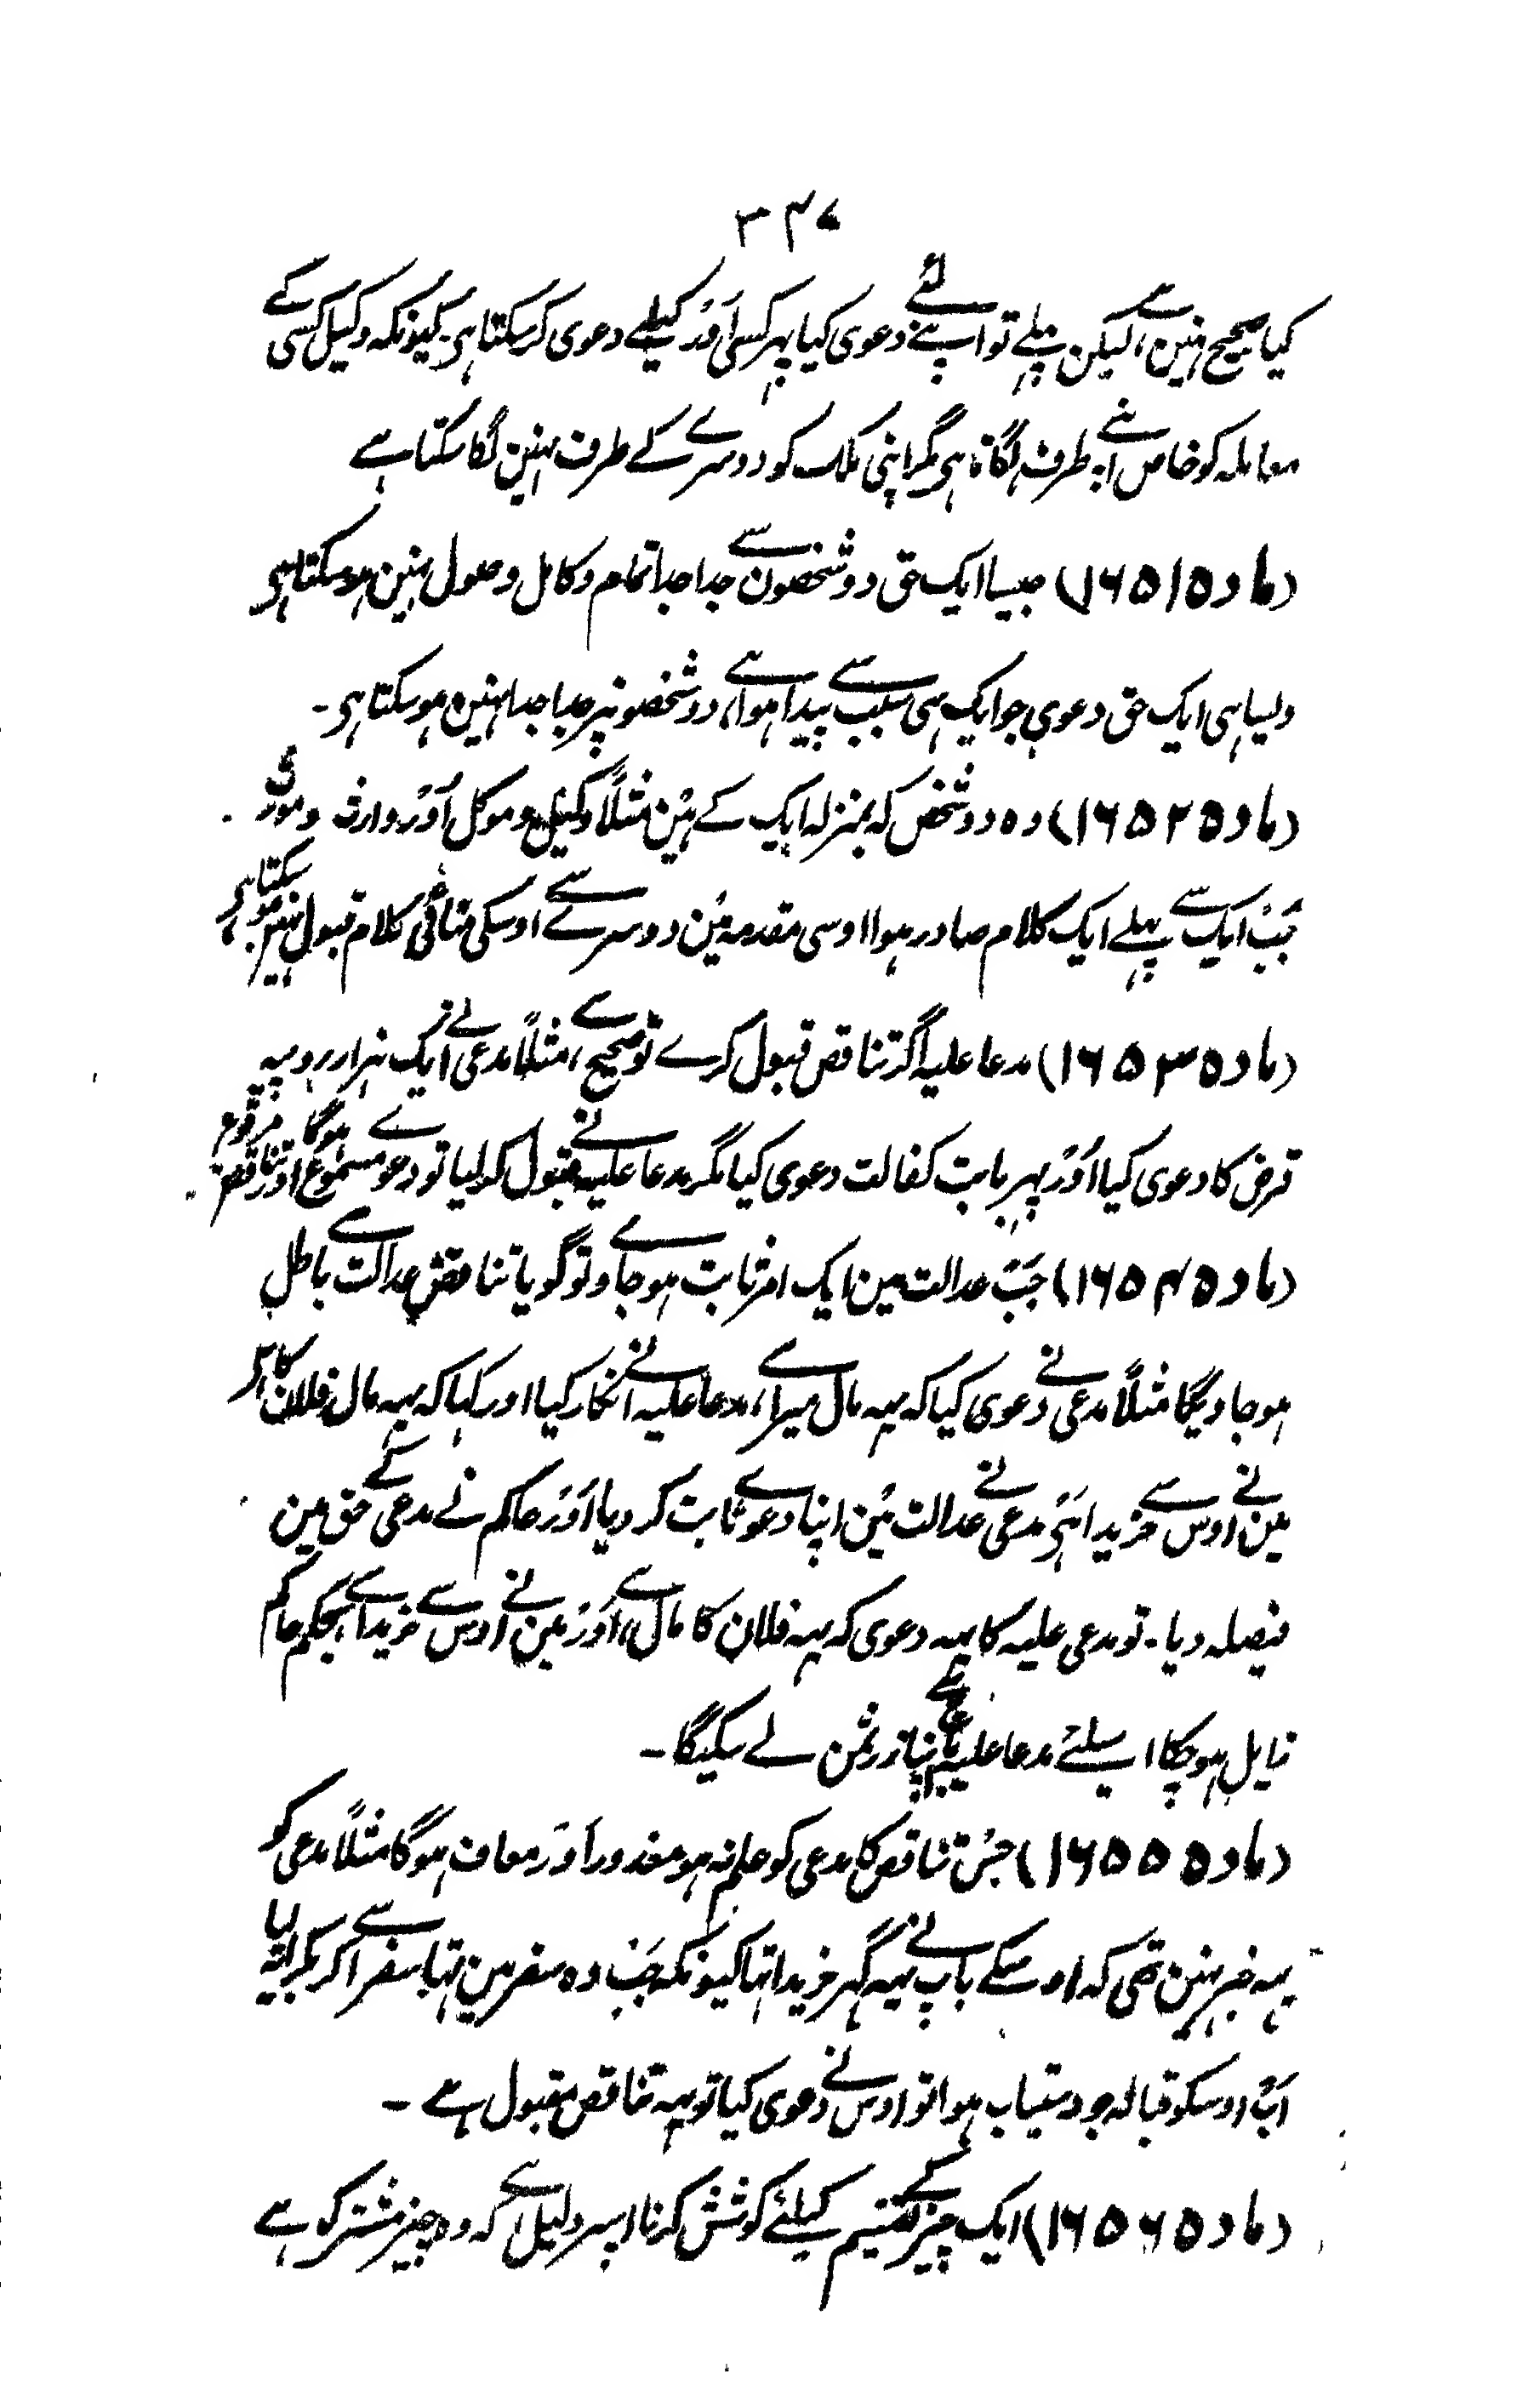 ۳۴۷
کیا صحیح نہین ہے، لیکن پہلے تو اپنے لئے دعوی کیا پہر کسی اَوْر کیلئے دعوی کر سکتا ہی۔ کیونکہ وکیل کسی کے
معاملہ کو خاص اپنے طرف لگاتا ہی مگر اپنی ملک کو دوسرے کے طرف نہین لگا سکتا ہے
(مادہ ۱۶۵۱) جیسا ایک حق دو شخصون سے جدا جدا تمام و کامل وصول نہین ہو سکتا ہی
ویسا ہی ایک حق دعوی جو ایک ہی سبب سے پیدا ہوا ہے، دو شخصونپر جدا جدا نہین ہو سکتا ہی۔
(مادہ ۱۶۵۲) وہ دو شخص کہ بمنزلہ ایک کے ہیْن مثلاً وکیل و موکل اَوْر وارث و مورث
جَبْ ایک سے پہلے ایک کلام صادر ہوا اوسی مقدمہ میْن دوسرے سے اوسکی منافی کلام قبول نہین ہو سکتا ہی
(مادہ ۱۶۵۳) مدعا علیہ اگر تناقض قبول کرے تو صحیح ہے، مثلاً مدعی نے ایک ہزار روپیہ
قرض کا دعوی کیا اَوْر پہر بابت کفالت دعوی کیا مگر مدعا علیہ نے قبول کر لیا تو دعوے مسموع ہوگا اور تناقض مرفوع
(مادہ ۱۶۵۴) جَبْ عدالت مین ایک امر ثابت ہو جاوے تو گویا تناقض عدالت سے باطل
ہو جاویگا مثلاً مدعی نے دعوی کیا کہ یہہ مال میرا ہے، مدعا علیہ نے انکار کیا اور کہا کہ یہہ مال فلان کا ہی
مین نے اوس سے خریدا ہَیْ مدعی نے عدالت میْن اپنا دعوے ثابت کر دیا اَوْر حاکم نے مدعی کے حق مین
فیصلہ دیا۔ تو مدعی علیہ کا یہہ دعوی کہ یہہ فلان کا مال ہے، اَوْر مین نے اوس سے خریدا ہے، بحکم حاکم
زایل ہو چکا اسلئے مدعا علیہ اپنا زر ثمن لے سکیگا۔
(مادہ ۱۶۵۵) جسْ تناقض کا مدعی کو علم نہ ہو معذور اَوْر معاف ہوگا مثلاً مدعی کو
یہہ خبر نہین تھی کہ اوسکے باپ نے یہہ گہر خریدا تہا کیونکہ جَبْ وہ سفر مین تہا سفر سے آکر بکرایہ لیا
اَبْ اوسکو قبالہ جو دستیاب ہوا تو اوس نے دعوی کیا تو یہہ تناقض مقبول ہے ۔
(مادہ ۱۶۵۶) ایک چیز کے تقسیم کیلئے کوشش کرنا اسپر دلیل ہے کہ وہ چیز مشترک ہے